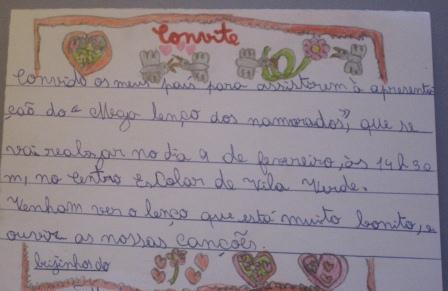 Convite
Convido os meus pais para assistirem à apresenta
ção do "Mega lenço dos namorados", que se
vai realizar no dia 9 de fevereiro, às 14h30
m, no Centro Escolar de Vila Verde.
Venham ver o lenço que está muito bonito, e
ouvir as nossas canções.
beijinhos do